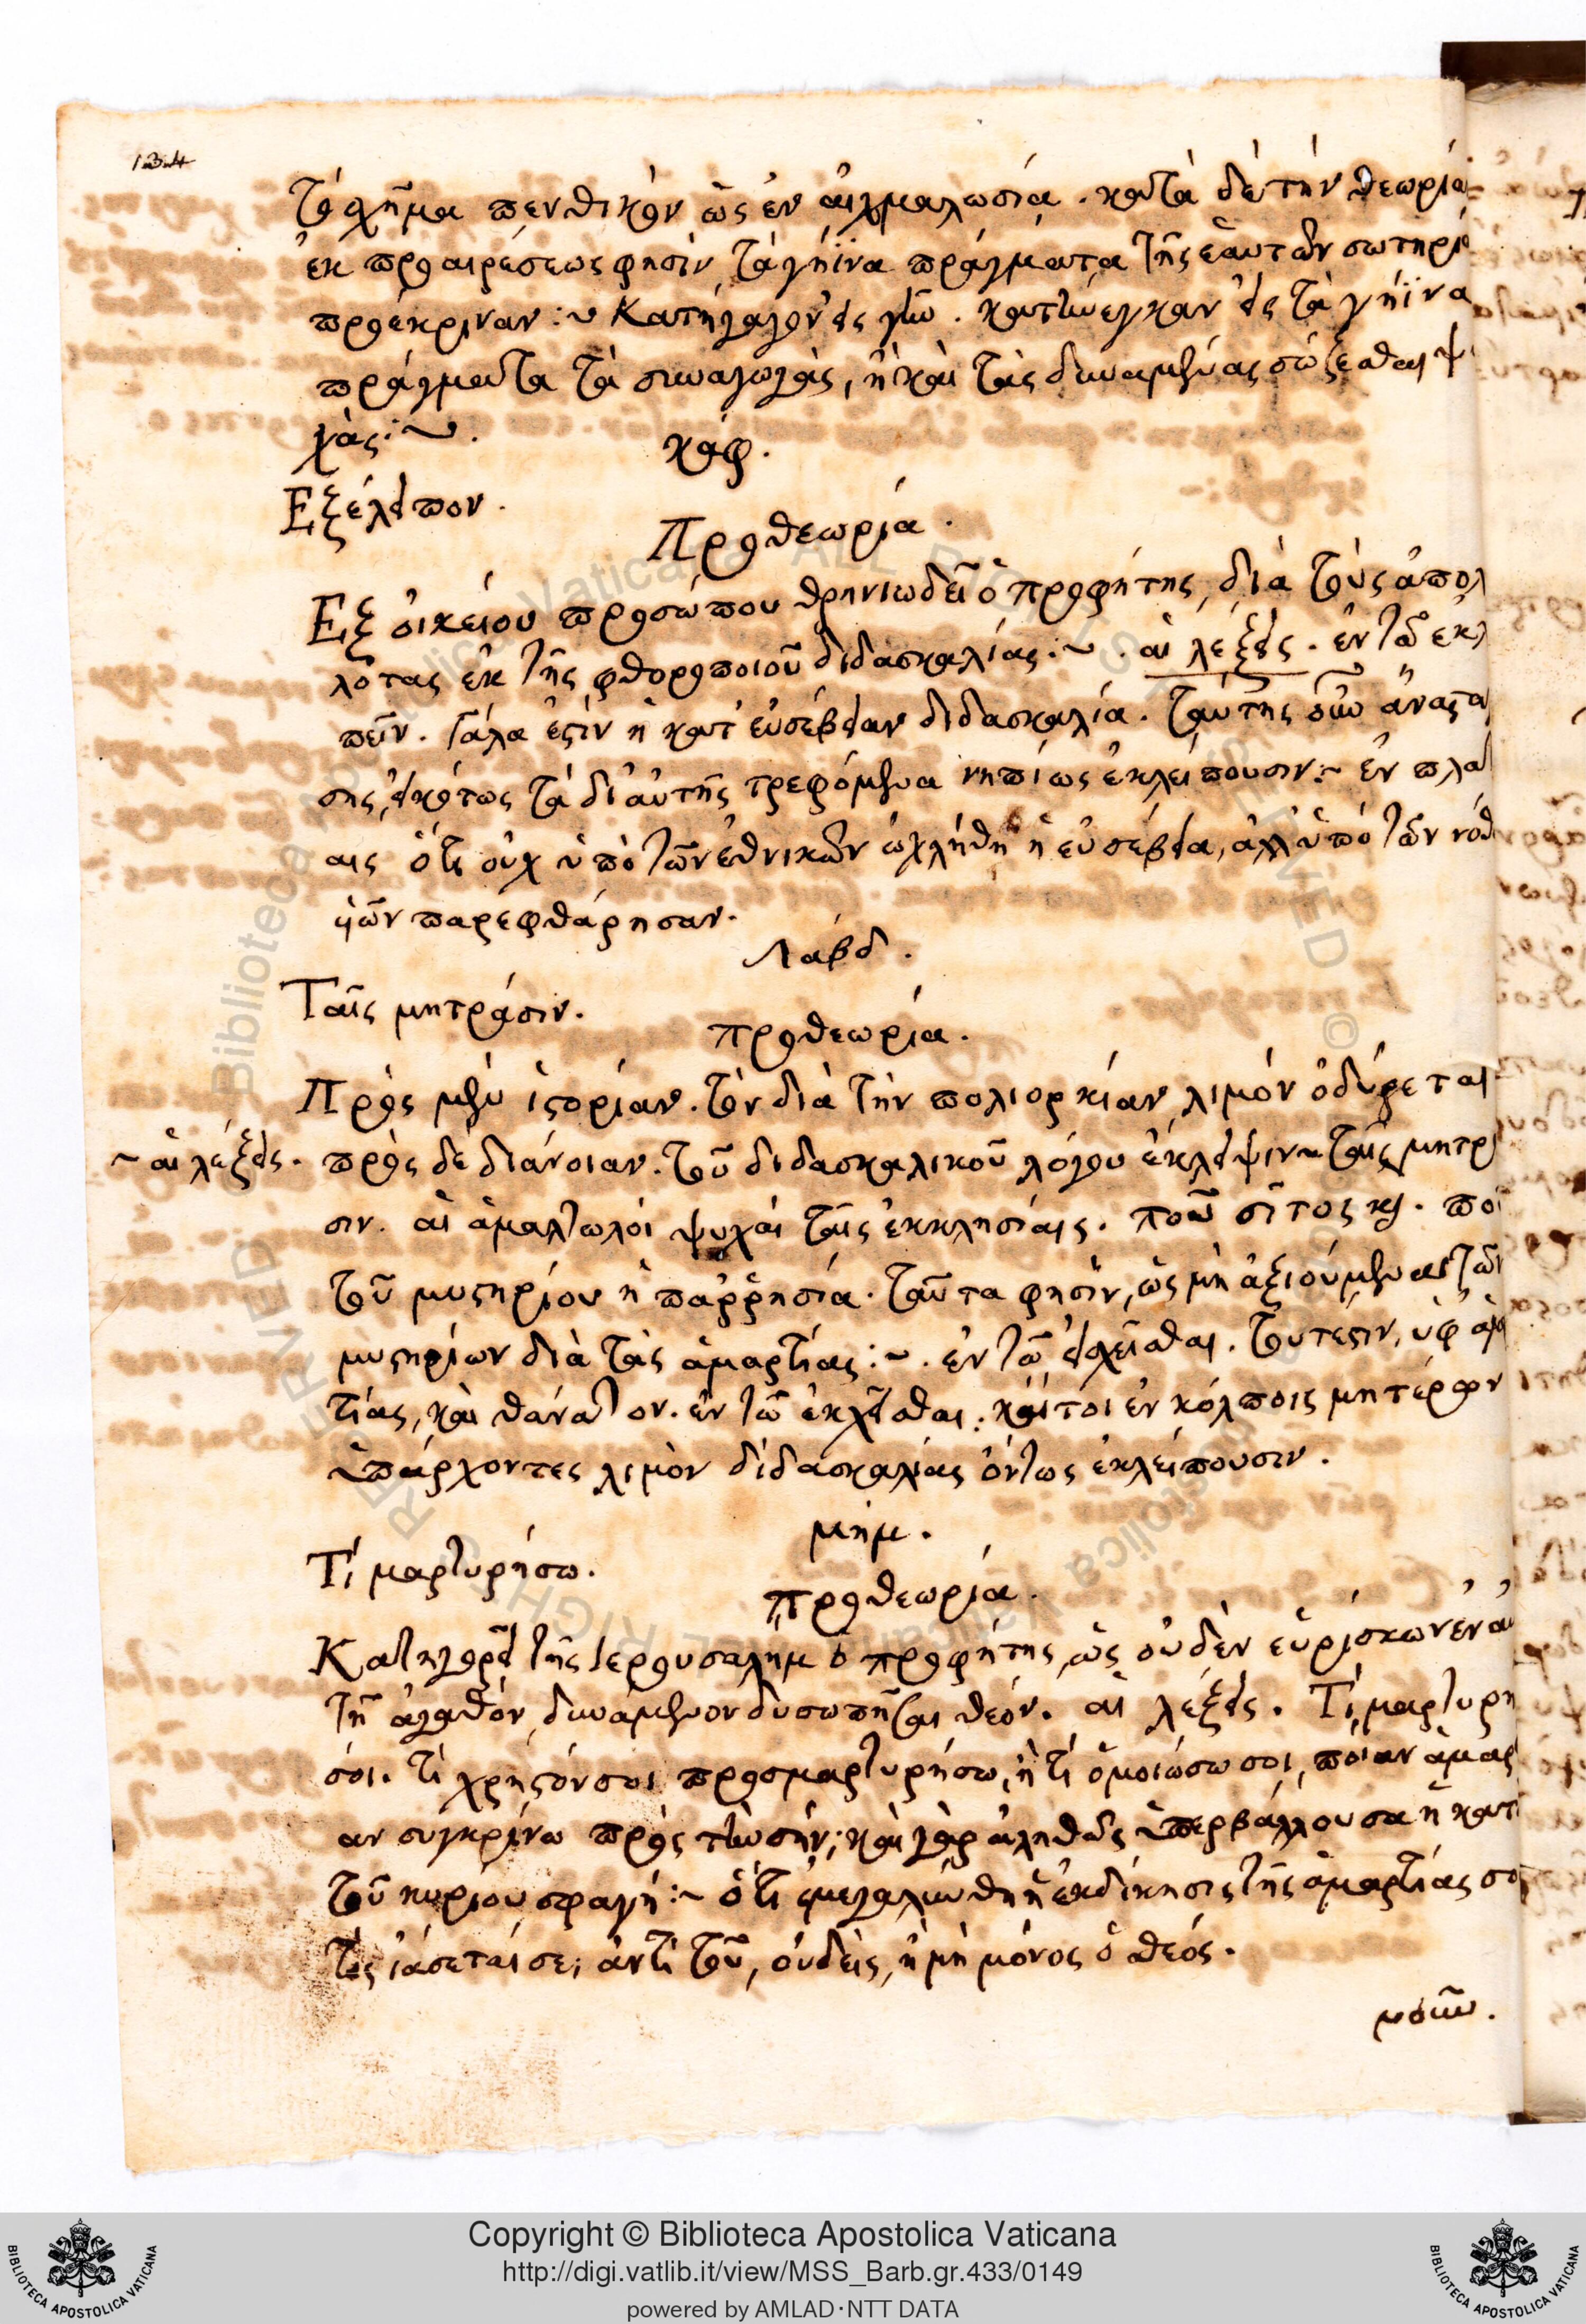 134
τὸ σχῆμα πενθικὸν ὡς ἐν αἰχμαλωσία. κατὰ δὲ τὴν θεωρία
ἐκ προαιρέσεως φησὶν τὰ γήϊνα πράγματα τῆς ἑαυτῶν σωτηρί
προέκριναν:~ Κατήγαγον εἰς γῆν. κατήνεγκαν εἰς τὰ γήϊνα
πράγματα τὰ συναγωγὰς, ἢ καὶ τὰς δυναμένας σώζεσθαι ψυ
χὰς:~.
κάφ.
Εξέλειπον.
Προθεωρία.
Εξ οἰκείου προσώπου θρηνωδεῖ ὁ προφήτης, διὰ τοὺς ἀπολ
λότας ἐκ τῆς φθοροποιοῦ διδασκαλίας:~. αἱ λέξεις. ἐν τῶ ἐκλ
πεῖν. Γάλα ἐστὶν ἡ κατ' εὐσέβειαν διδασκαλία. ταύτης οὖν ἀναστα
σης, εἰκότως τὰ δι' αὐτῆς τρεφόμενα νηπίως ἐκλείπουσιν:~ ἐν πλα
αις ὅτι οὐχ ὑπὸ τῶν ἐθνικῶν ὠχλήθη ἡ εὐσέβεια, ἀλλ' ὑπὸ τῶν νόθ
ὑῶν παρεφθάρησαν.
Λάβδ.
Ταῖς μητράσιν.
προθεωρία.
Πρὸς μὲν ἱστορίαν. τὸν διὰ τὴν πολιορκίαν λιμόν ὀδύρεται
~ αἱ λέξεις. πρὸς δὲ διάνοιαν. τοῦ διδασκαλικοῦ λόγου ἔκλειψιν~ ταῖς μητρ
σιν. αἱ ἁμαρτωλοί ψυχαί ταῖς ἐκκλησίαις. ποῦ σῖτος κ. ποῦ
τοῦ μυστηρίου ἡ παρρησία. ταῦτα φησὶν, ὡς μὴ ἀξιούμεναι τῶν
μυστηρίων διὰ τὰς ἁμαρτίας:~. ἐν τῶ ἐκχεῖσθαι. τουτέστιν, ὑφ' ἁμ
τίας, καὶ θάνατον. ἐν τῶ ἐκχεῖσθαι. καίτοι ἐν κόλποις μητέρων
ὑπάρχοντες λιμὸν διδασκαλίας ὄντως ἐκλείπουσιν.
μήμ.
Τί μαρτυρήσω.
προθεωρία.
Κατηγορεῖ τῆς ἱερουσαλὴμ ὁ προφήτης, ὡς οὐδὲν εὑρίσκων ἐν αὐ
τῆ ἀγαθόν δυνάμενον δυσωπῆσαι θεόν. αἱ λέξεις. Τί μαρτυρή
σοι. τί χρηστόν σοι προσμαρτυρήσω, ἢ τί ὁμοιώσω σοι, ποίαν ἁμαρ
αν συγκρίνω πρὸς τὴν σήν; καὶ γὰρ ἀληθῶς ὑπερβάλλουσα ἡ κατ
τοῦ κυρίου σφαγή:~ ὅτι ἐμεγαλύνθη ἡ ἐκδίκησις τῆς ἁμαρτίας σο
τίς ἰάσεταί σε; ἀντὶ τοῦ, οὐδεὶς, ἢ μὴ μόνος ὁ θεός.
νοῦν.
Copyright © Biblioteca Apostolica Vaticana
http://digi.vatlib.it/view/MSS_Barb.gr.433/0149
powered by AMLAD·NTT DATA